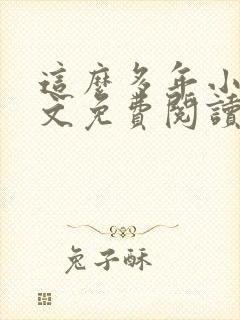 這麼多年小
文免費閱讀
兔子酥